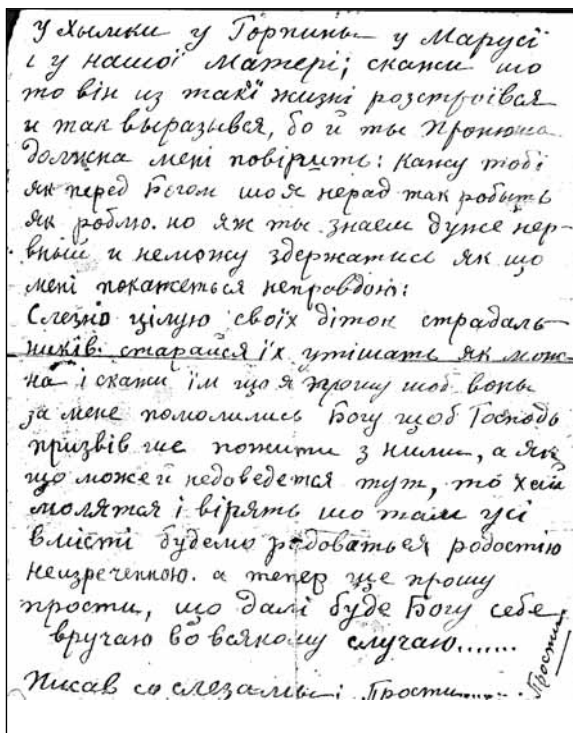 у Хымки у Горпины у Марусі
і у нашої матери; скажи шо
то він из такії жизні розстроівся
и так выразывся, бо й ты Пронюша
должна мені повірить: кажу тобі
як перед Богом шо я нерад так робыть
як роблю. но яж ты знаєш дуже нер-
вный и неможу здержатись як що
мені покажеться неправдою:
Слезно цілую своіх діток страдаль-
ників. старайся їх утішать як мож-
на і скажи їм що я прошу щоб воны
за мене помолились Богу щоб Господь
призвів ще пожити з ними, а як
що може й недоведется тут, то хай
молятся і вірять шо там усі
вмісті будемо радоваться радостію
неизреченною. а тепер ще прошу
прости, що далі буде Богу себе
вручаю во всякому случаю.......
Писав со слезамы і Прости.......
Прости